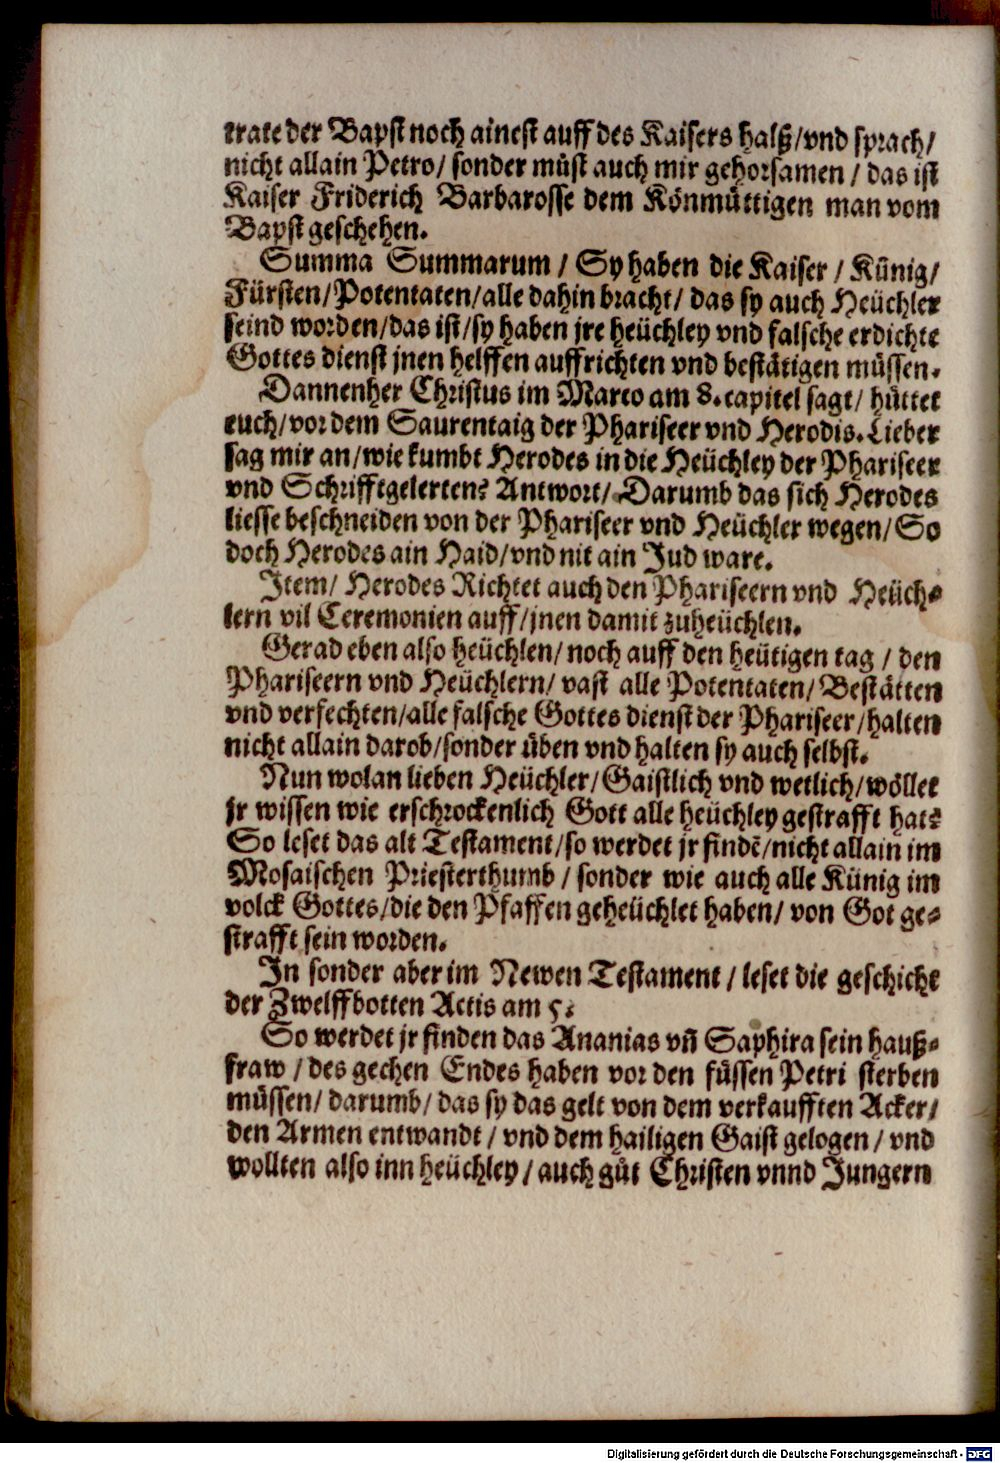 trate der Bapst noch ainest auff des Kaisers halß/vnd sprach/
nicht allain Petro/ sonder müst auch mir gehorsamen / das ist
Kaiser Friderich Barbarosse dem Könmüttigen man vom
Bapst geschehen.
Summa Summarum / Sy haben die Kaiser / Künig/
Fürsten/Potentaten/alle dahin bracht/ das sy auch Heüchler
seind worden/das ist/sy haben jre heüchley vnd falsche erdichte
Gottes dienst jnen helffen auffrichten vnd bestätigen müssen.
Dannenher Christus im Marco am 8. capitel sagt/ hüttet
euch/vor dem Saurentaig der Phariseer vnd Herodis. Lieber
sag mir an/wie kumbt Herodes in die Heüchley der Phariseer
vnd Schrifftgelerten? Antwort/ Darumb das sich Herodes
liesse beschneiden von der Phariseer vnd Heüchler wegen/ So
doch Herodes ain Haid/vnd nit ain Jud ware.
Item/ Herodes Richtet auch den Phariseern vnd Heüch-
lern vil Ceremonien auff/jnen damit zuheüchlen.
Gerad eben also heüchlen/ noch auff den heütigen tag / den
Phariseern vnd Heüchlern/ vast alle Potentaten/ Bestätten
vnd verfechten/alle falsche Gottes dienst der Phariseer/halten
nicht allain darob/sonder üben vnd halten sy auch selbst.
Nun wolan lieben Heüchler/Gaistlich vnd wetlich/wöllet
jr wissen wie erschrockenlich Gott alle heüchley gestrafft hat?
So leset das alt Testament/so werdet jr findẽ/nicht allain im
Mosaischen Priesterthumb / sonder wie auch alle Künig im
volck Gottes/die den Pfaffen geheüchlet haben/ von Got ge-
strafft sein worden.
In sonder aber im Newen Testament / leset die geschicht
der Zwelffbotten Actis am 5.
So werdet jr finden das Ananias vñ Saphira sein hauß-
fraw / des gechen Endes haben vor den füssen Petri sterben
müssen/ darumb/ das sy das gelt von dem verkaufften Acker/
den Armen entwandt / vnd dem hailigen Gaist gelogen / vnd
wollten also inn heüchley / auch gůt Christen vnnd Jungern
Digitalisierung gefördert durch die Deutsche Forschungsgemeinschaft - DFG